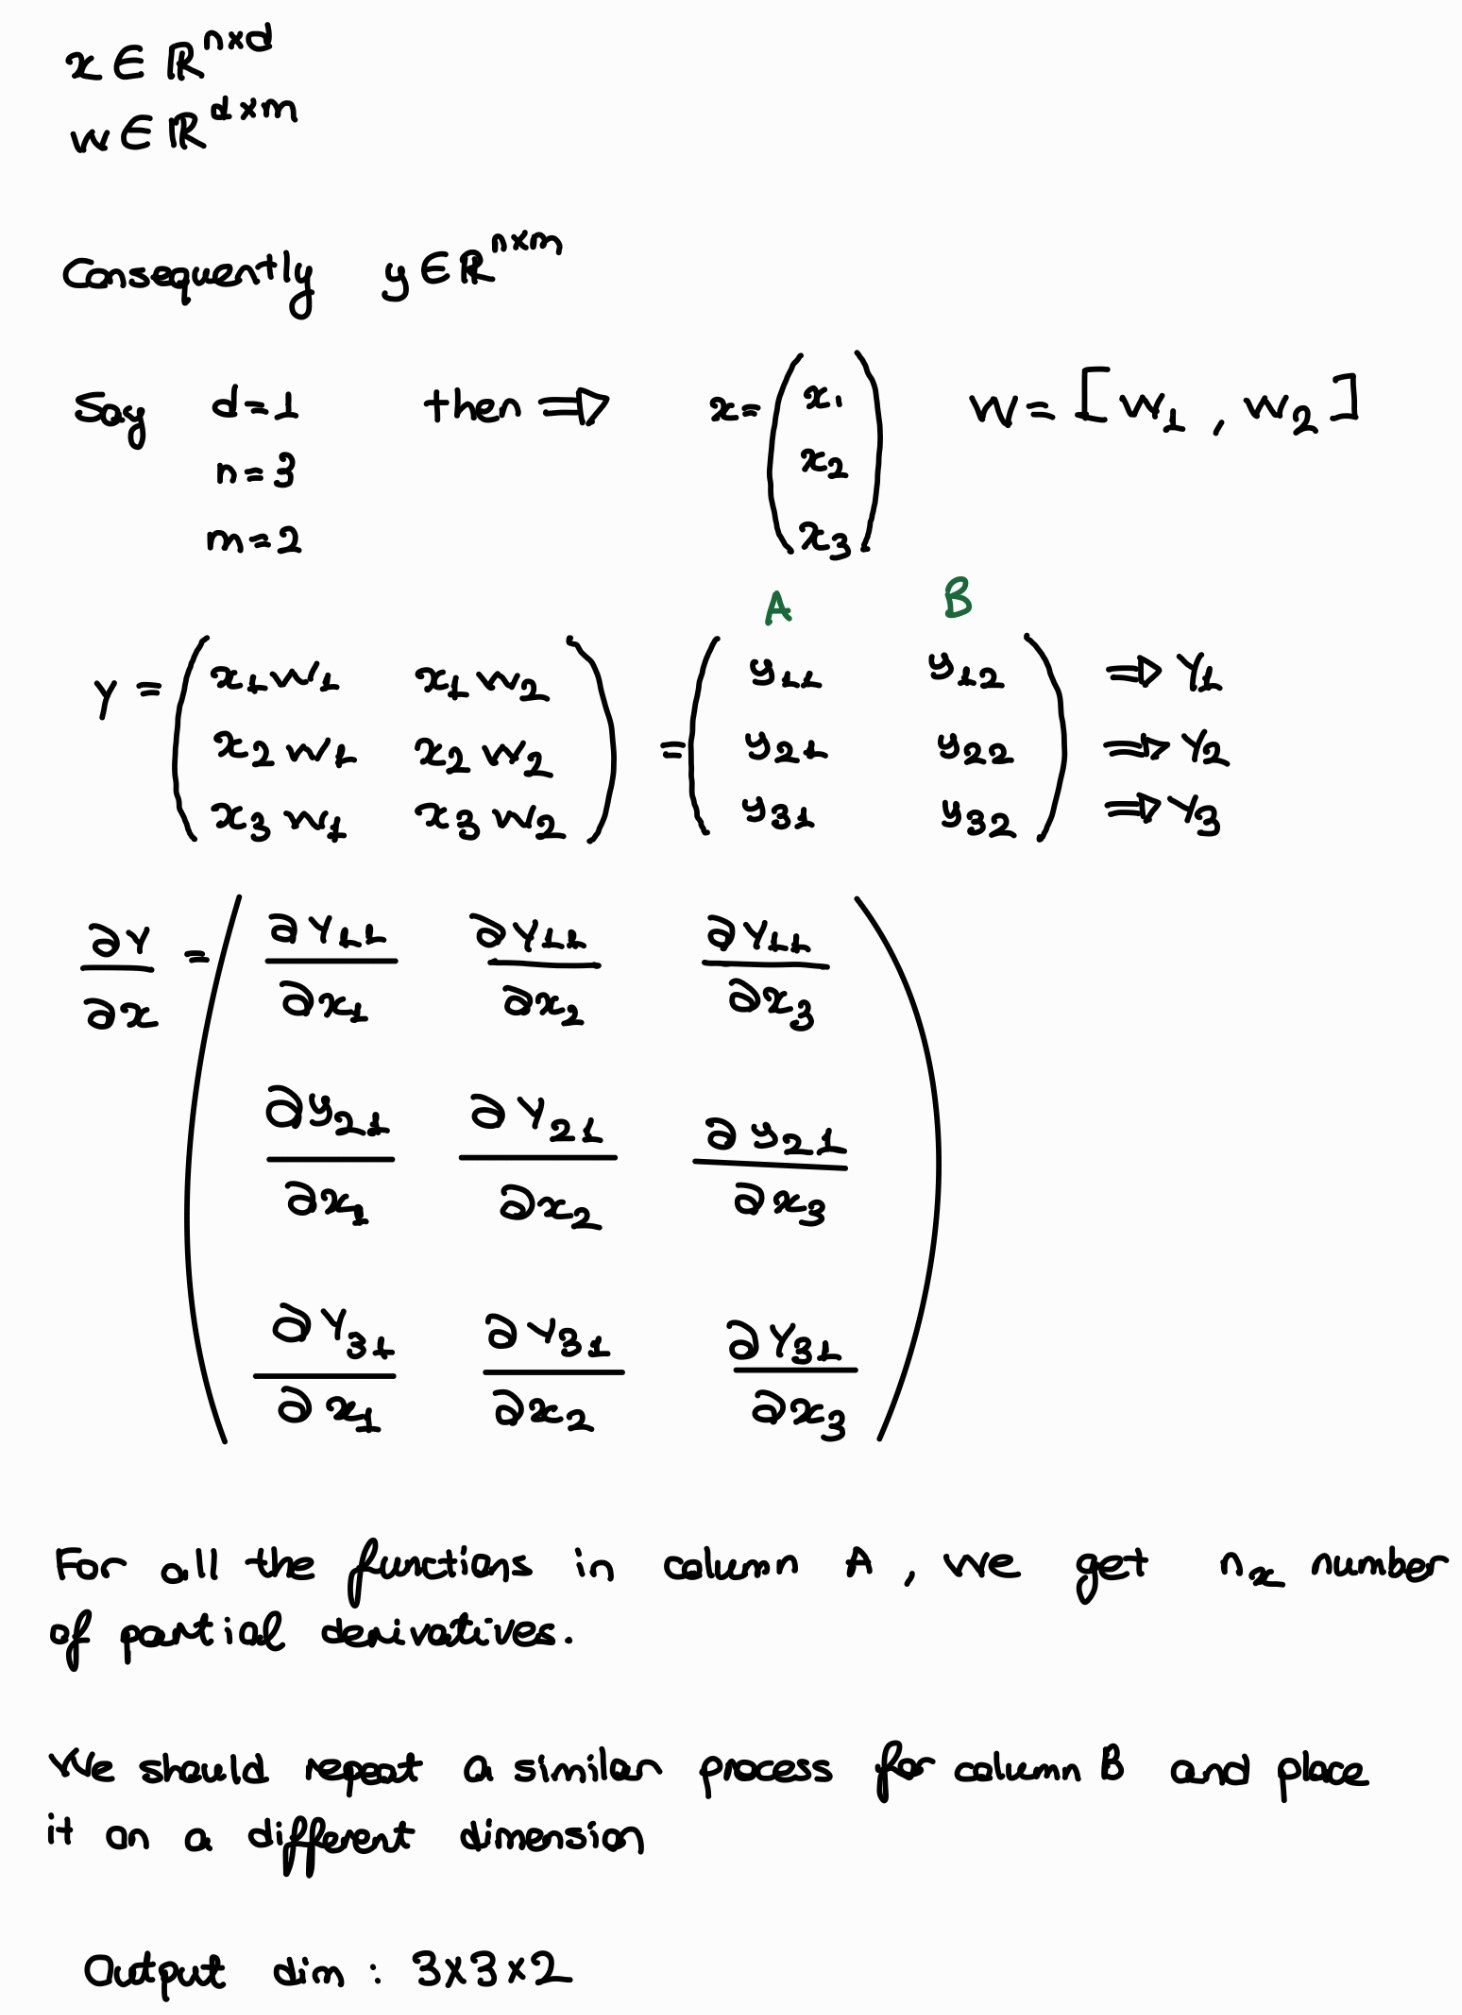 x ∈ ℝ^{n×d}
w ∈ ℝ^{d×m}
Consequently y ∈ ℝ^{n×m}
Say d=1 then ⇒ x = (x₁ W = [w₁, w₂]
n=3 x₂
m=2 x₃)
A B
Y = (x₁w₁ x₁w₂ = (y₁₁ y₁₂ ⇒ Y₁
x₂w₁ x₂w₂ y₂₁ y₂₂ ⇒ Y₂
x₃w₁ x₃w₂) y₃₁ y₃₂) ⇒ Y₃
∂Y/∂x = (∂Y₁₁/∂x₁ ∂Y₁₁/∂x₂ ∂Y₁₁/∂x₃
∂y₂₁/∂x₁ ∂Y₂₁/∂x₂ ∂y₂₁/∂x₃
∂Y₃₁/∂x₁ ∂Y₃₁/∂x₂ ∂Y₃₁/∂x₃)
For all the functions in column A, we get nₓ number
of partial derivatives.
We should repeat a similar process for column B and place
it on a different dimension
Output dim : 3×3×2